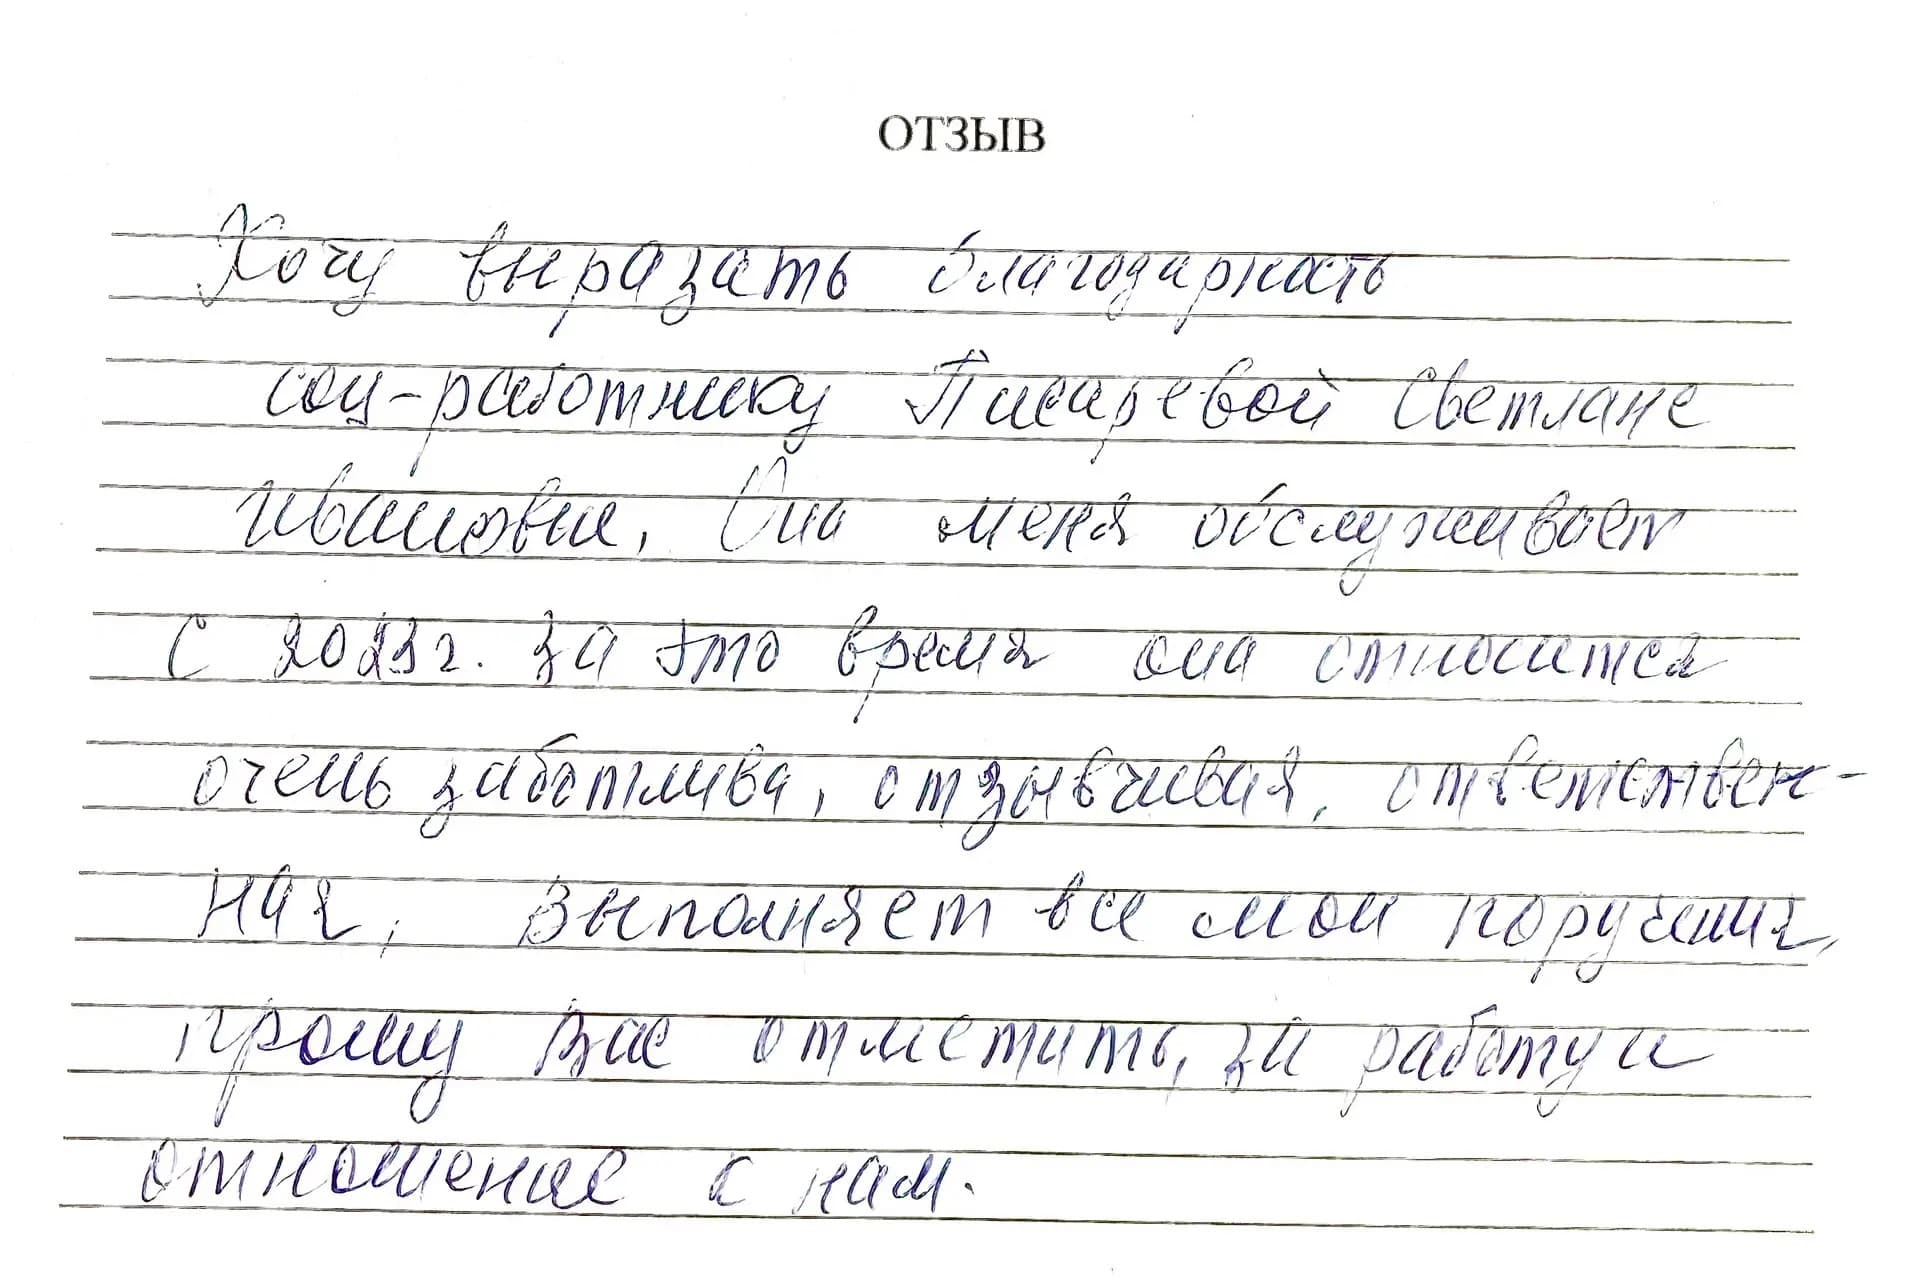 ОТЗЫВ
Хочу выразать благодарность
соц-работнику Писаревой Светлане
Ивановне, Она меня обслуживает
с 2023г. за это время она относится
очень заботлива, отзывчивая, ответствен-
ная, выполняет все мои поручения,
прошу Вас отметить, за работу и
отношение к нам.